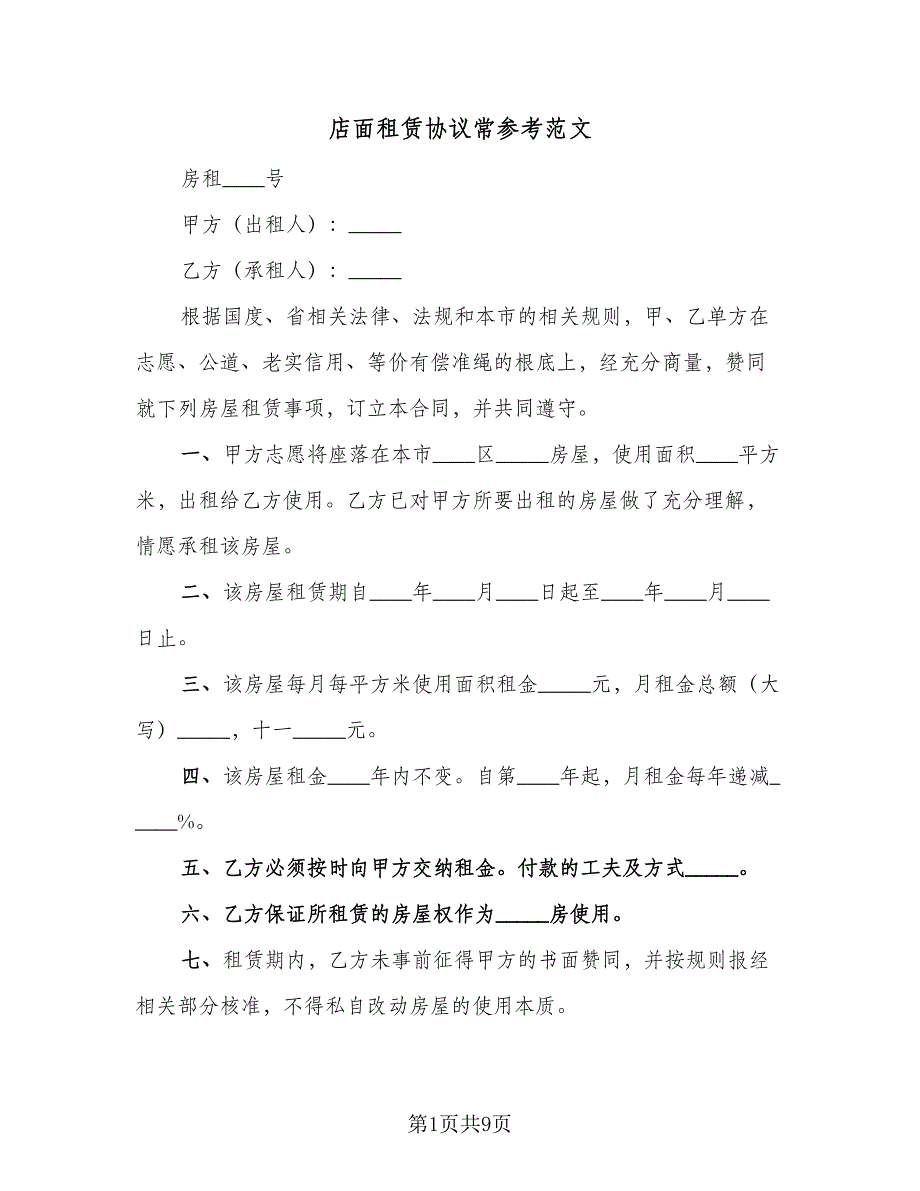 店面租赁协议常参考范文
房租____号
甲方（出租人）：_____
乙方（承租人）：_____
根据国度、省相关法律、法规和本市的相关规则，甲、乙单方在
志愿、公道、老实信用、等价有偿准绳的根底上，经充分商量，赞同
就下列房屋租赁事项，订立本合同，并共同遵守。
一、甲方志愿将座落在本市____区_____房屋，使用面积____平方
米，出租给乙方使用。乙方已对甲方所要出租的房屋做了充分理解，
情愿承租该房屋。
二、该房屋租赁期自____年____月____日起至____年____月____
日止。
三、该房屋每月每平方米使用面积租金_____元，月租金总额（大
写）_____，十一_____元。
四、该房屋租金____年内不变。自第____年起，月租金每年递减_
____%。
五、乙方必须按时向甲方交纳租金。付款的工夫及方式_____。
六、乙方保证所租赁的房屋权作为_____房使用。
七、租赁期内，乙方未事前征得甲方的书面赞同，并按规则报经
相关部分核准，不得私自改动房屋的使用本质。
第1页共9页